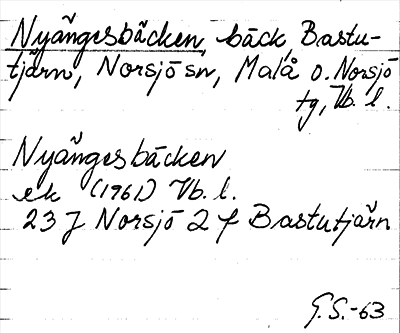 Nyängesbäcken, bäck, Bastu-
tjärn, Norsjö sn, Malå o. Norsjö
tg, Vb. l.
Nyängesbäcken
ek (1961) Vb. l.
23 J Norsjö 2 f Bastutjärn
G. S.-63